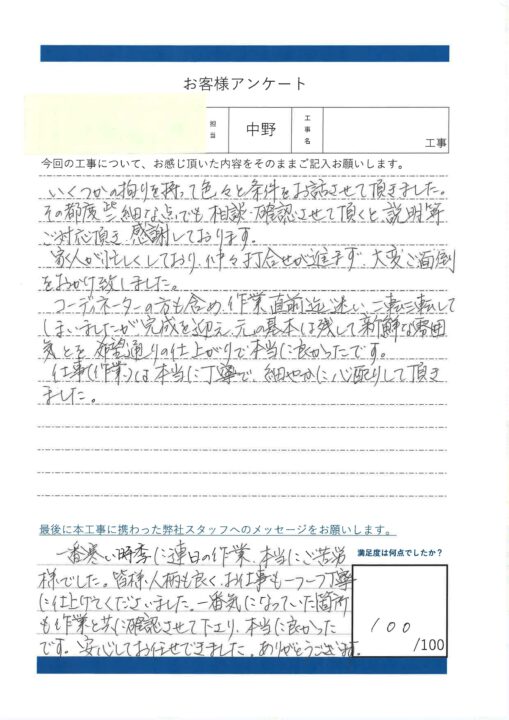 お客様アンケート
担当
中野
工事名
工事
今回の工事について、お感じ頂いた内容をそのままご記入お願いします。
いくつかの拘りを持って色々と条件をお話させて頂きました。
その都度些細な点でも相談・確認させて頂くと、説明等
ご対応頂き感謝しております。
家人が忙しくしており、中々打合せが進まず、大変ご面倒
をおかけ致しました。
コーディネーターの方も含め作業直前迄迷い、二転三転して
しまいましたが完成を迎え、元の基本は残して新鮮な雰囲
気とを希望通りの仕上がりで本当に良かったです。
仕事(作業)は本当に丁寧で、細やかに心配りして頂き
ました。
最後に本工事に携わった弊社スタッフへのメッセージをお願いします。
一番寒い時季に連日の作業、本当にご苦労
様でした。皆様、人柄も良く、お仕事も一つ一つ丁寧
に仕上げてくださいました。一番気になっていた箇所
も作業と共に確認させて下さり、本当に良かった
です。安心してお任せできました。ありがとうございます。
満足度は何点でしたか?
100
/100